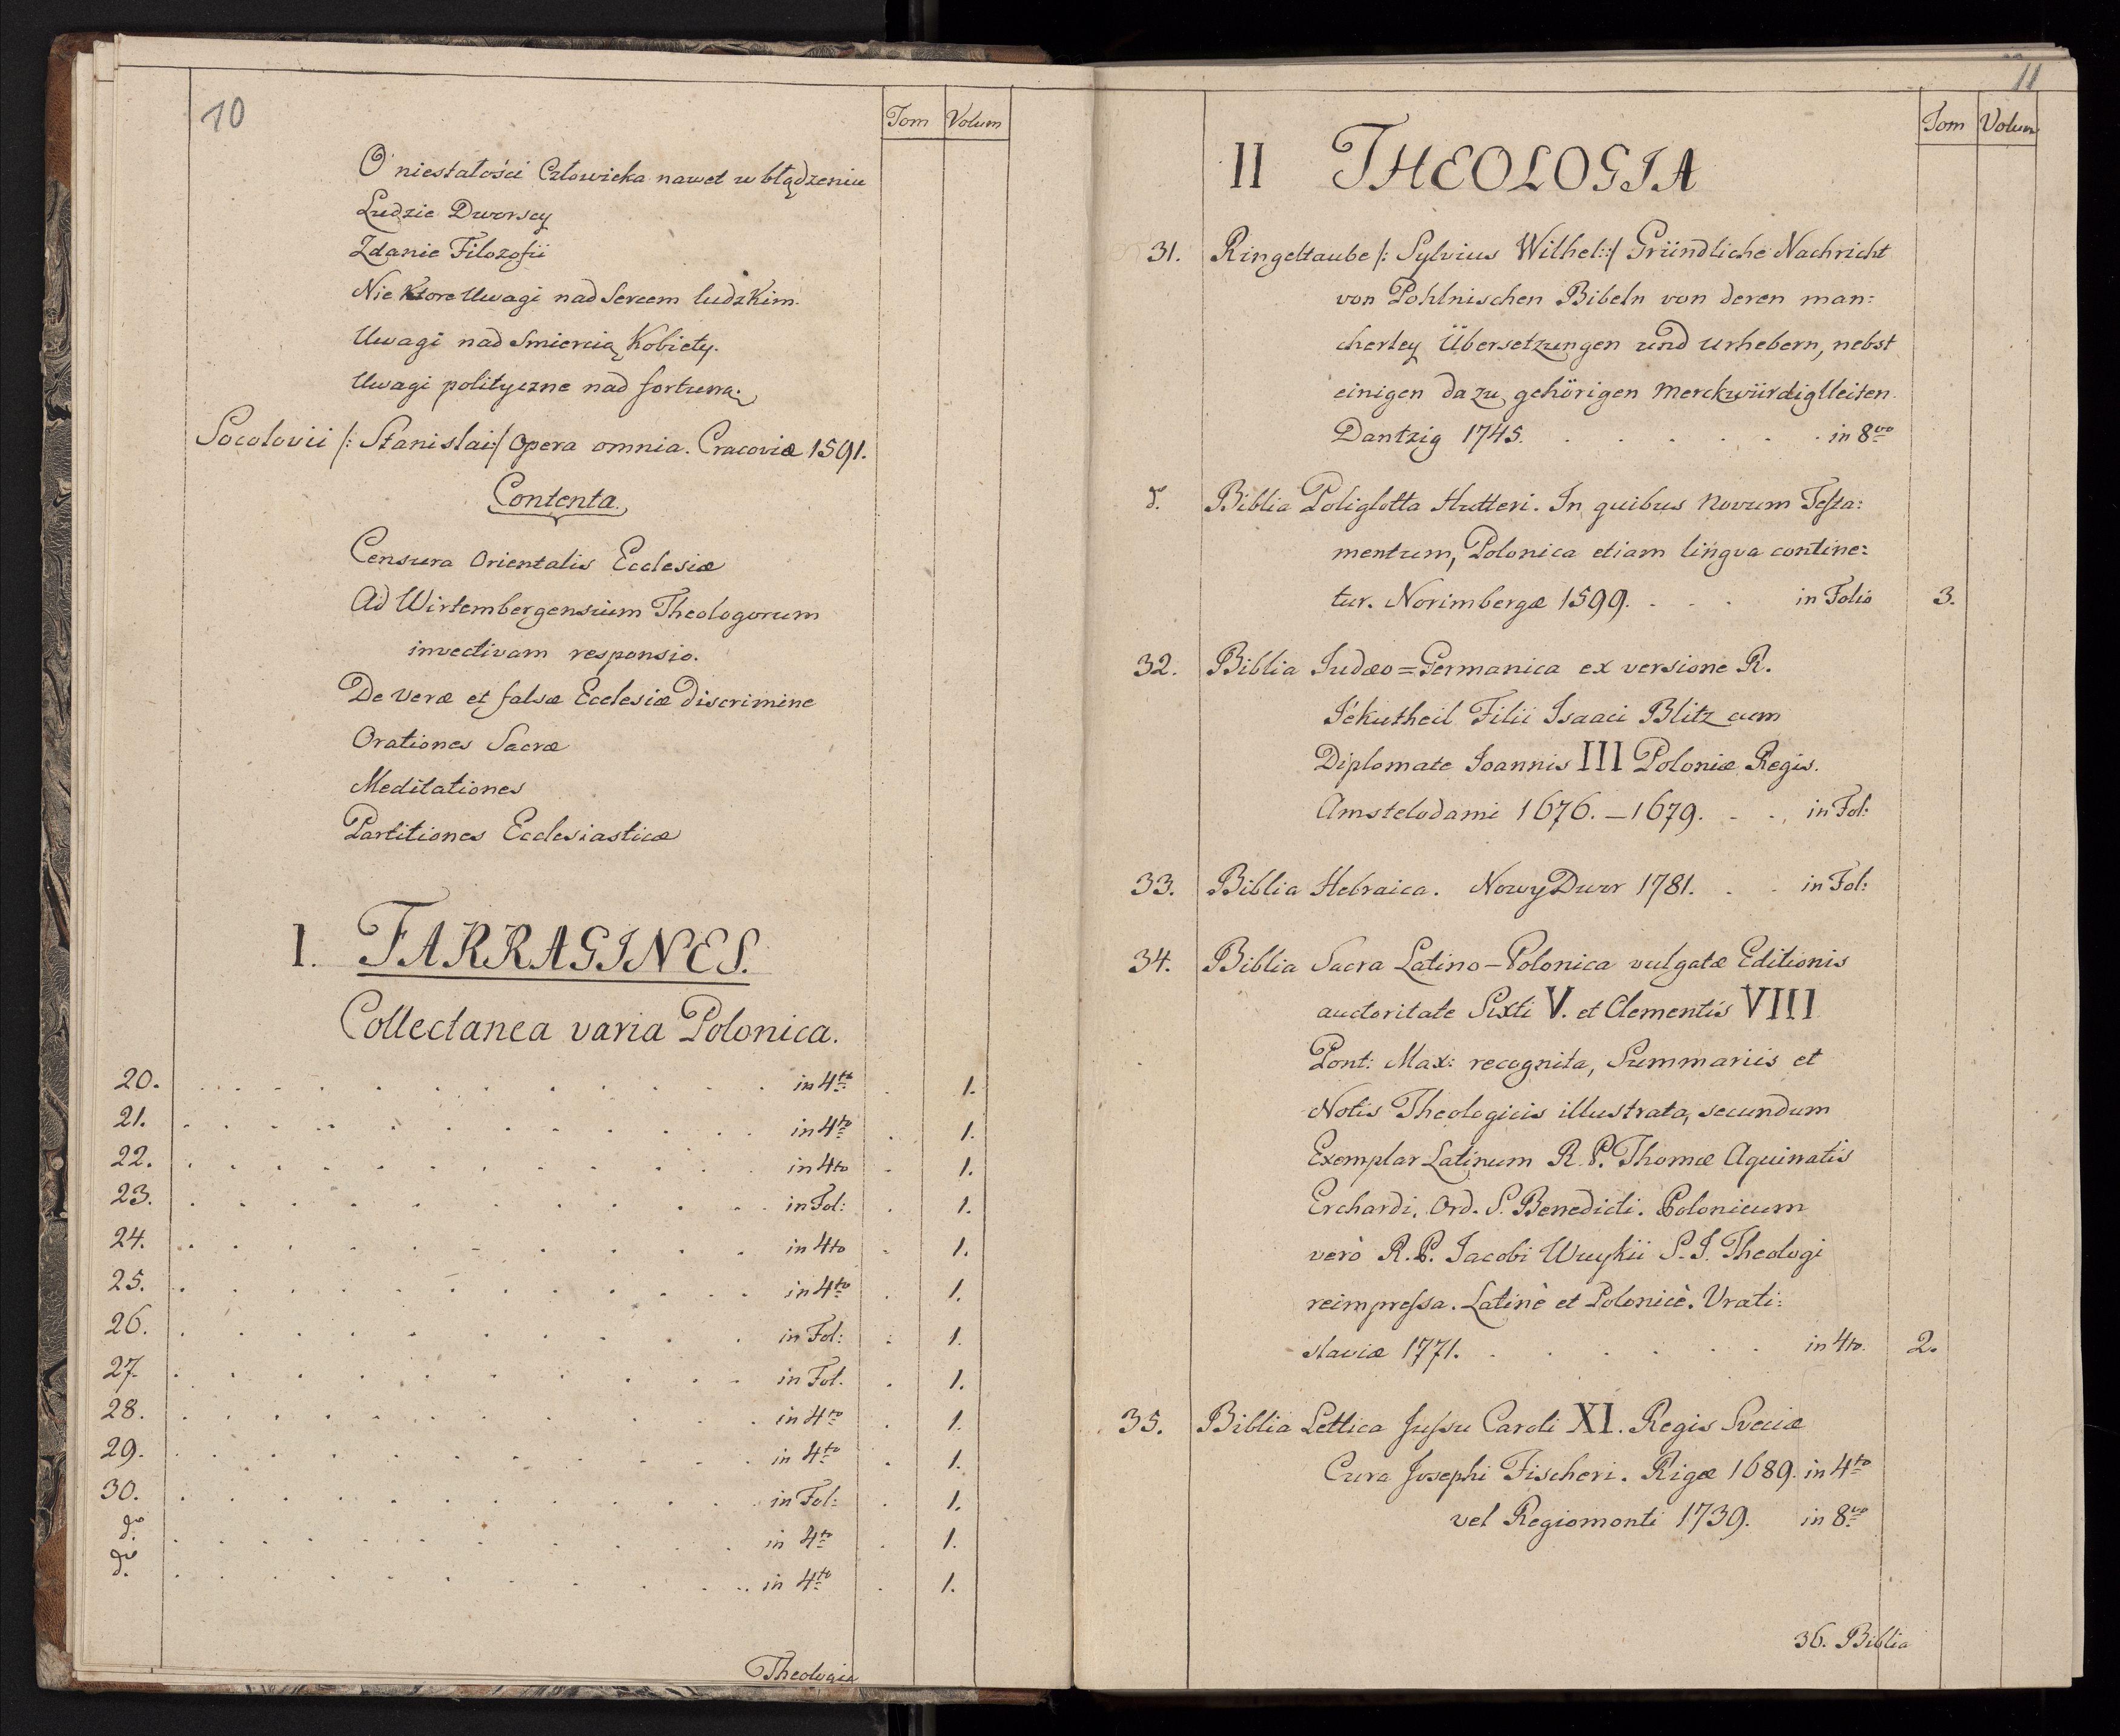 10
Tom Volum
O niestałości Człowieka nawet w błądzeniu
Ludzie Dworscy
Zdanie Filozofii
Nie ktore Uwagi nad Sercem ludzkim.
Uwagi nad Smiercią Kobiety.
Uwagi polityczne nad fortuną.
Socolovii /: Stanislai :/ Opera omnia. Cracoviæ 1591.
Contenta.
Censura Orientalis Ecclesiæ
Ad Wirtembergensium Theologorum
invectivam responsio.
De veræ et falsæ Ecclesiæ discrimine
Orationes Sacræ
Meditationes
Partitiones Ecclesiasticæ
I. FARRAGINES.
Collectanea varia Polonica.
20. . . . in 4to . 1.
21. . . . in 4to . 1.
22. . . . in 4to . 1.
23. . . . in Fol: . 1.
24. . . . in 4to . 1.
25. . . . in 4to . 1.
26. . . . in Fol: . 1.
27. . . . in Fol. . 1.
28. . . . in 4to . 1.
29. . . . in 4to . 1.
30. . . . in Fol: . 1.
do. . . . in 4to . 1.
do. . . . in 4to . 1.
Theologia
11
Tom Volum
II THEOLOGIA
31. Ringeltaube /: Sylvius Wilhel: :/ Gründliche Nachricht
von Pohlnischen Bibeln von deren man:
cherley Übersetzungen und Urhebern, nebst
einigen dazu gehörigen Merckwürdigkeiten.
Dantzig 1745. . . . in 8vo
d. Biblia Poliglotta Hutteri. In quibus Novum Testa:
mentum, Polonica etiam lingva contine:
tur. Norimbergæ 1599. . . . in Folio 3.
32. Biblia Judæo=Germanica ex versione R.
Jékutheil Filii Isaaci Blitz cum
Diplomate Joannis III Poloniæ Regis.
Amstelodami 1676.–1679. . . in Fol:
33. Biblia Hebraica. Nowy Dwor 1781. . . in Fol:
34. Biblia Sacra Latino–Polonica vulgatæ Editionis
auctoritate Sixti V. et Clementis VIII
Pont: Max: recognita, Summariis et
Notis Theologicis illustrata, secundum
Exemplar Latinum R. P. Thomæ Aquinatis
Erchardi. Ord. S. Benedicti. Polonicum
verò R. P. Jacobi Wuykii S. J. Theologi
reimpressa. Latinè et Polonicè. Vrati:
slaviæ 1771. . . . in 4to. 2.
35. Biblia Lettica Jussu Caroli XI. Regis Sveciæ
Cura Josephi Fischeri. Rigæ 1689. in 4to
vel Regiomonti 1739. in 8vo
36. Biblia